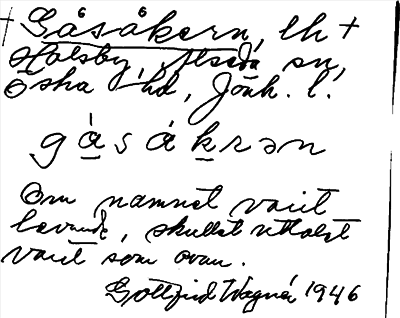 † Gåsåkern, lh †
Holsby, Alseda sn,
Östra hd, Jönk. l.
g å s å k r ə n
Om namnet varit
levande, skullet uttalet
varit som ovan.
Gottfrid Wagnér 1946